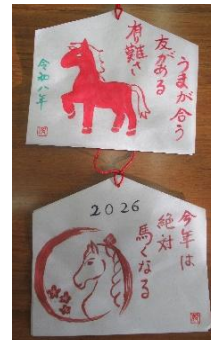 うまが合う
友がある
有難さ
令和八年
2026
今年は
絶対
馬くなる